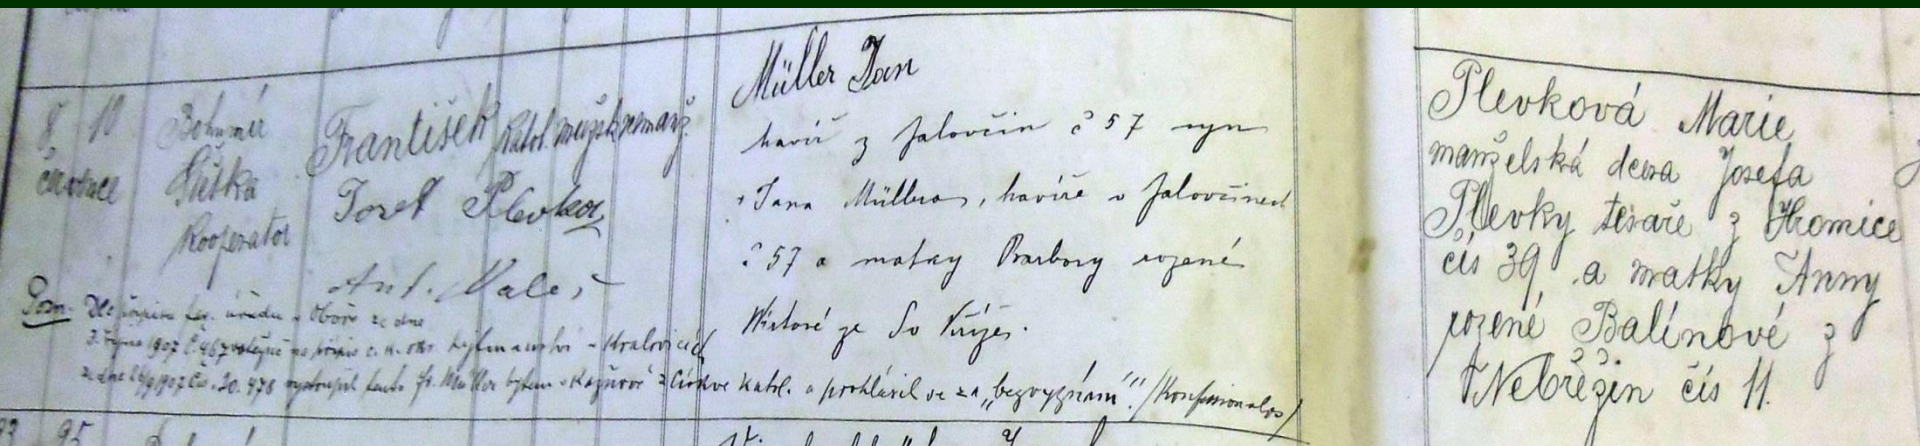 8 10
července
Bohumír
kooperator
František
Josef Plevka
Ant. Maleš
katol. mužsk nemanž.
Müller Jan
havíř z Jalovčin č 57 syn
Jana Müllera, havíře v Jalovčinech
č 57 a matky Barbory rozené
ze Sv Kříže.
Plevková Marie
manželská dcera Josefa
Plevky tesaře z Hromice
čís 39 a matky Anny
rozené Balínové z
Nebřezin čís 11.
Pozn. Dle přípisu far. úřadu v Oboře ze dne
3. října 1907 č. 467 na přípis c. k. okr. hejtmanství v Kralovicích
ze dne čís. 20.478 vystoupil tento Fr. Müller bytem v Kaznově z církve katol. a prohlásil se za „bezvyznání“. /Konfessionslos/
93 95